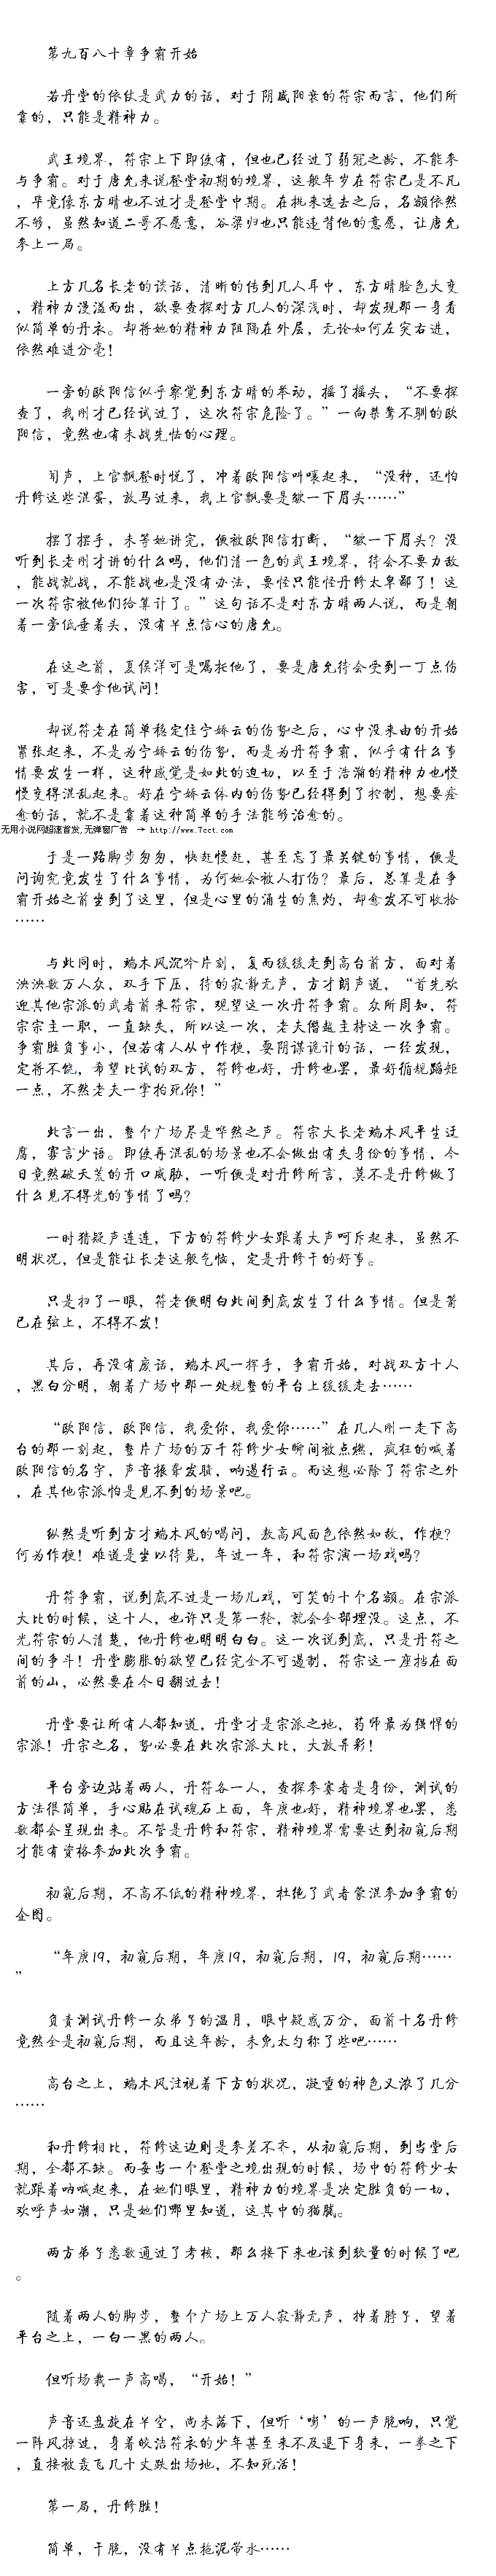 第九百八十章争霸开始
若丹堂的依仗是武力的话，对于阴盛阳衰的符宗而言，他们所
靠的，只能是精神力。
武王境界，符宗上下即使有，但也已经过了弱冠之龄，不能参
与争霸。对于唐允来说登堂初期的境界，这般年岁在符宗已是不凡
，毕竟像东方晴也不过才是登堂中期。在挑来选去之后，名额依然
不够，虽然知道二哥不愿意，谷梁归也只能违背他的意愿，让唐允
参上一局。
上方几名长老的谈话，清晰的传到几人耳中，东方晴脸色大变
，精神力漫溢而出，欲要查探对方几人的深浅时，却发现那一身看
似简单的丹衣。却将她的精神力阻隔在外层，无论如何左突右进，
依然难进分毫！
一旁的欧阳信似乎察觉到东方晴的举动，摇了摇头，“不要探
查了，我刚才已经试过了，这次符宗危险了。”一向桀骜不驯的欧
阳信，竟然也有未战先怯的心理。
闻声，上官飘登时慌了，冲着欧阳信叫嚷起来，“没种，还怕
丹修这些混蛋，放马过来，我上官飘要是皱一下眉头……”
摆了摆手，未等她讲完，便被欧阳信打断，“皱一下眉头？没
听到长老刚才讲的什么吗，他们清一色的武王境界，待会不要力敌
，能战就战，不能战也是没有办法，要怪只能怪丹修太卑鄙了！这
一次符宗被他们给算计了。”这句话不是对东方晴两人说，而是朝
着一旁低垂着头，没有半点信心的唐允。
在这之前，夏侯洋可是嘱托他了，要是唐允待会受到一丁点伤
害，可是要拿他试问！
却说符老在简单稳定住宁娇云的伤势之后，心中没来由的开始
紧张起来，不是为宁娇云的伤势，而是为丹符争霸，似乎有什么事
情要发生一样，这种感觉是如此的迫切，以至于浩瀚的精神力也慢
慢变得混乱起来。好在宁娇云体内的伤势已经得到了控制，想要痊
愈的话，就不是靠着这种简单的手法能够治愈的。
无用小说网超速首发,无弹窗广告 → http://www.7cct.com
于是一路脚步匆匆，快赶慢赶，甚至忘了最关键的事情，便是
问询究竟发生了什么事情，为何她会被人打伤？最后，总算是在争
霸开始之前坐到了这里，但是心里的涌生的焦灼，却愈发不可收拾
……
与此同时，端木风沉吟片刻，复而缓缓走到高台前方，面对着
泱泱数万人众，双手下压，待的寂静无声，方才朗声道，“首先欢
迎其他宗派的武者前来符宗，观望这一次丹符争霸。众所周知，符
宗宗主一职，一直缺失，所以这一次，老夫僭越主持这一次争霸。
争霸胜负事小，但若有人从中作梗，耍阴谋诡计的话，一经发现，
定将不饶，希望比试的双方，符修也好，丹修也罢，最好循规蹈矩
一点，不然老夫一掌拍死你！”
此言一出，整个广场尽是哗然之声。符宗大长老端木风平生迂
腐，寡言少语。即使再混乱的场景也不会做出有失身份的事情，今
日竟然破天荒的开口威胁，一听便是对丹修所言，莫不是丹修做了
什么见不得光的事情了吗？
一时猜疑声连连，下方的符修少女跟着大声呵斥起来，虽然不
明状况，但是能让长老这般气恼，定是丹修干的好事。
只是扫了一眼，符老便明白此间到底发生了什么事情。但是箭
已在弦上，不得不发！
其后，再没有废话，端木风一挥手，争霸开始，对战双方十人
，黑白分明，朝着广场中那一处规整的平台上缓缓走去……
“欧阳信，欧阳信，我爱你，我爱你……”在几人刚一走下高
台的那一刻起，整片广场的万千符修少女瞬间被点燃，疯狂的喊着
欧阳信的名字，声音振聋发聩，响遏行云。而这想必除了符宗之外
，在其他宗派怕是见不到的场景吧。
纵然是听到方才端木风的喝问，敖高风面色依然如故，作梗？
何为作梗！难道是坐以待毙，年过一年，和符宗演一场戏吗？
丹符争霸，说到底不过是一场儿戏，可笑的十个名额。在宗派
大比的时候，这十人，也许只是第一轮，就会全部埋没。这点，不
光符宗的人清楚，他丹修也明明白白。这一次说到底，只是丹符之
间的争斗！丹堂膨胀的欲望已经完全不可遏制，符宗这一座挡在面
前的山，必然要在今日翻过去！
丹堂要让所有人都知道，丹堂才是宗派之地，药师最为强悍的
宗派！丹宗之名，势必要在此次宗派大比，大放异彩！
平台旁边站着两人，丹符各一人，查探参赛者是身份，测试的
方法很简单，手心贴在试魂石上面，年庚也好，精神境界也罢，悉
数都会呈现出来。不管是丹修和符宗，精神境界需要达到初窥后期
才能有资格参加此次争霸。
初窥后期，不高不低的精神境界，杜绝了武者蒙混参加争霸的
企图。
“年庚19，初窥后期，年庚19，初窥后期，19，初窥后期……
”
负责测试丹修一众弟子的温月，眼中疑惑万分，面前十名丹修
竟然全是初窥后期，而且这年龄，未免太匀称了些吧……
高台之上，端木风注视着下方的状况，凝重的神色又浓了几分
……
和丹修相比，符修这边则是参差不齐，从初窥后期，到登堂后
期，全都不缺。而每当一个登堂之境出现的时候，场中的符修少女
就跟着呐喊起来，在她们眼里，精神力的境界是决定胜负的一切，
欢呼声如潮，只是她们哪里知道，这其中的猫腻。
两方弟子悉数通过了考核，那么接下来也该到较量的时候了吧
。
随着两人的脚步，整个广场上万人寂静无声，抻着脖子，望着
平台之上，一白一黑的两人。
但听场裁一声高喝，“开始！”
声音还盘旋在半空，尚未落下，但听‘嘭’的一声脆响，只觉
一阵风掠过，身着皎洁符衣的少年甚至来不及退下身来，一拳之下
，直接被轰飞几十丈跌出场地，不知死活！
第一局，丹修胜！
简单，干脆，没有半点拖泥带水……